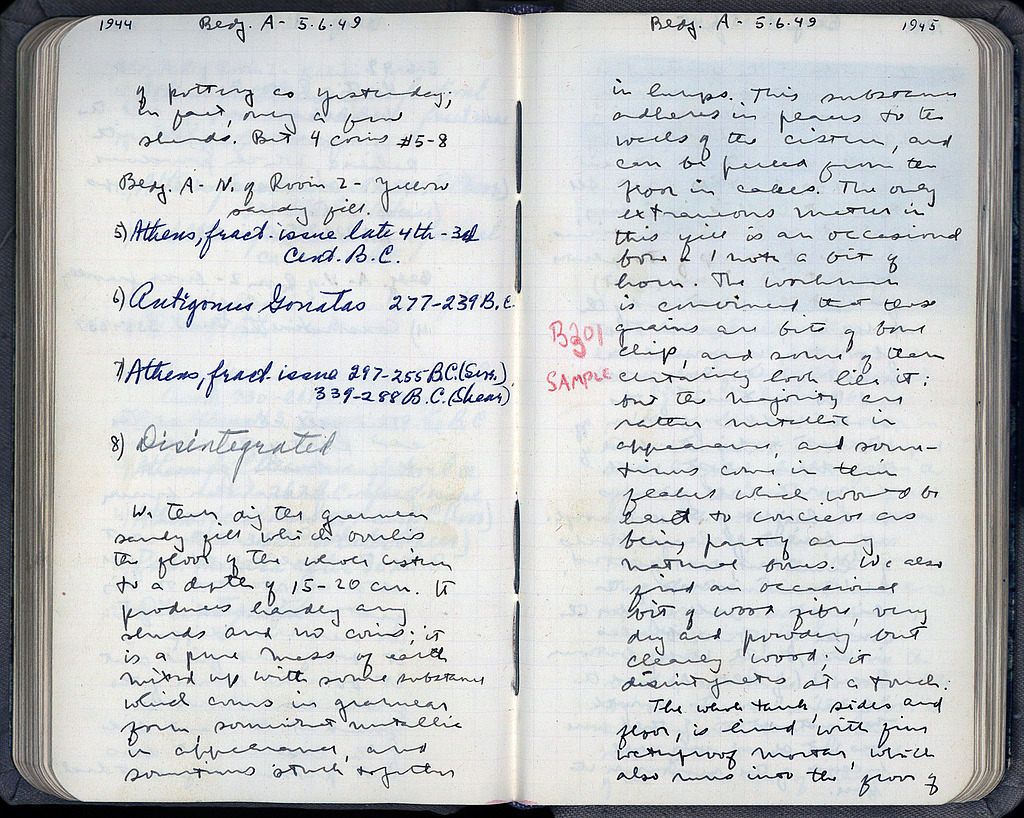 1944 Bldg. A - 5.6.49
of pottery as yesterday;
in fact, only a few
sherds. But 4 coins #5-8
Bldg. A - N. of Room 2 - Yellow
sandy fill.
5) Athens, fract. issue late 4th - 3d
Cent. B.C.
6) Antigonus Gonatas 277-239 B.C.
7) Athens, fract. issue 297-255 B.C. (Svor.)
339-288 B.C. (Shear)
8) Disintegrated
We then dig the granular
sandy fill which overlies
the floor of the whole cistern
to a depth of 15-20 cm. It
produces hardly any
sherds and no coins; it
is a pure mess of earth
mixed up with some substance
which comes in granular
form, somewhat metallic
in appearance, and
sometimes stuck together
Bldg. A - 5.6.49 1945
in lumps. This substance
adheres in places to the
walls of the cistern, and
can be peeled from the
floor in cakes. The only
extraneous matter in
this fill is an occasional
bone & / or a bit of
horn. The workman
is convinced that these
grains are bits of bone
chip, and some of them
certainly look like it;
but the majority are
rather metallic in
appearance, and some-
times come in thin
flakes which would be
hard to conceive as
being part of any
natural bones. We also
find an occasional
bit of wood fibre, very
dry and powdery but
clearly wood; it
disintegrates at a touch.
The whole tank, sides and
floor, is lined with fine
waterproof mortar, which
also runs into the floor of
B 301
SAMPLE